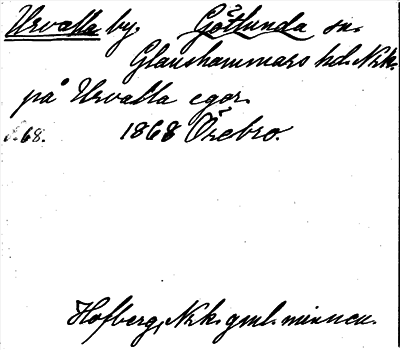 Urvalla by. Götlunda sn.
Glanshammars hd. Nrk.
på Urvalla egor.
s. 68. 1868 Örebro.
Hofberg, Nrk. gml. minnen.